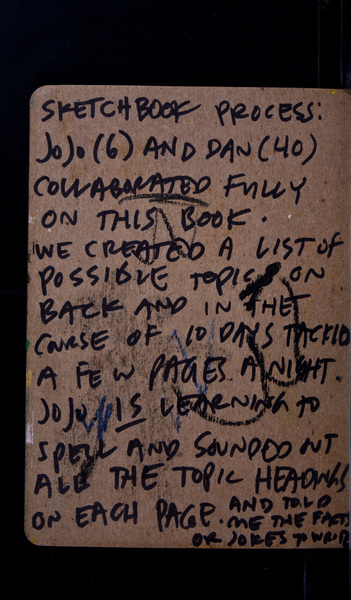 SKETCHBOOK PROCESS:
JOJO (6) AND DAN (40)
COLLABORATED FULLY
ON THIS BOOK.
WE CREATED A LIST OF
POSSIBLE TOPICS ON
BACK AND IN THE
COURSE OF 10 DAYS TACKLED
A FEW PAGES A NIGHT.
JOJO IS LEARNING TO
SPELL AND SOUNDED OUT
ALL THE TOPIC HEADINGS
ON EACH PAGE. AND TOLD
ME THE FACTS
OR JOKES TO WRITE